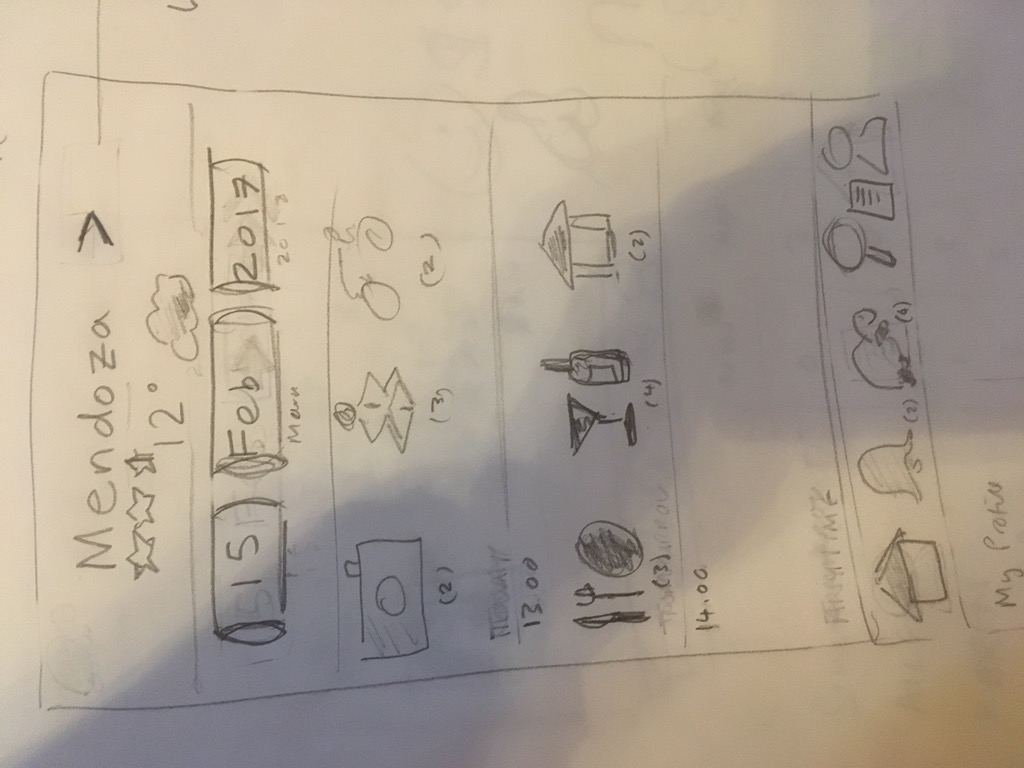 Mendoza >
12°
15 Feb 2017
2017
(2) (3) (2)
13.00
(3) (4) (2)
14.00
(2) (4)
My Profile